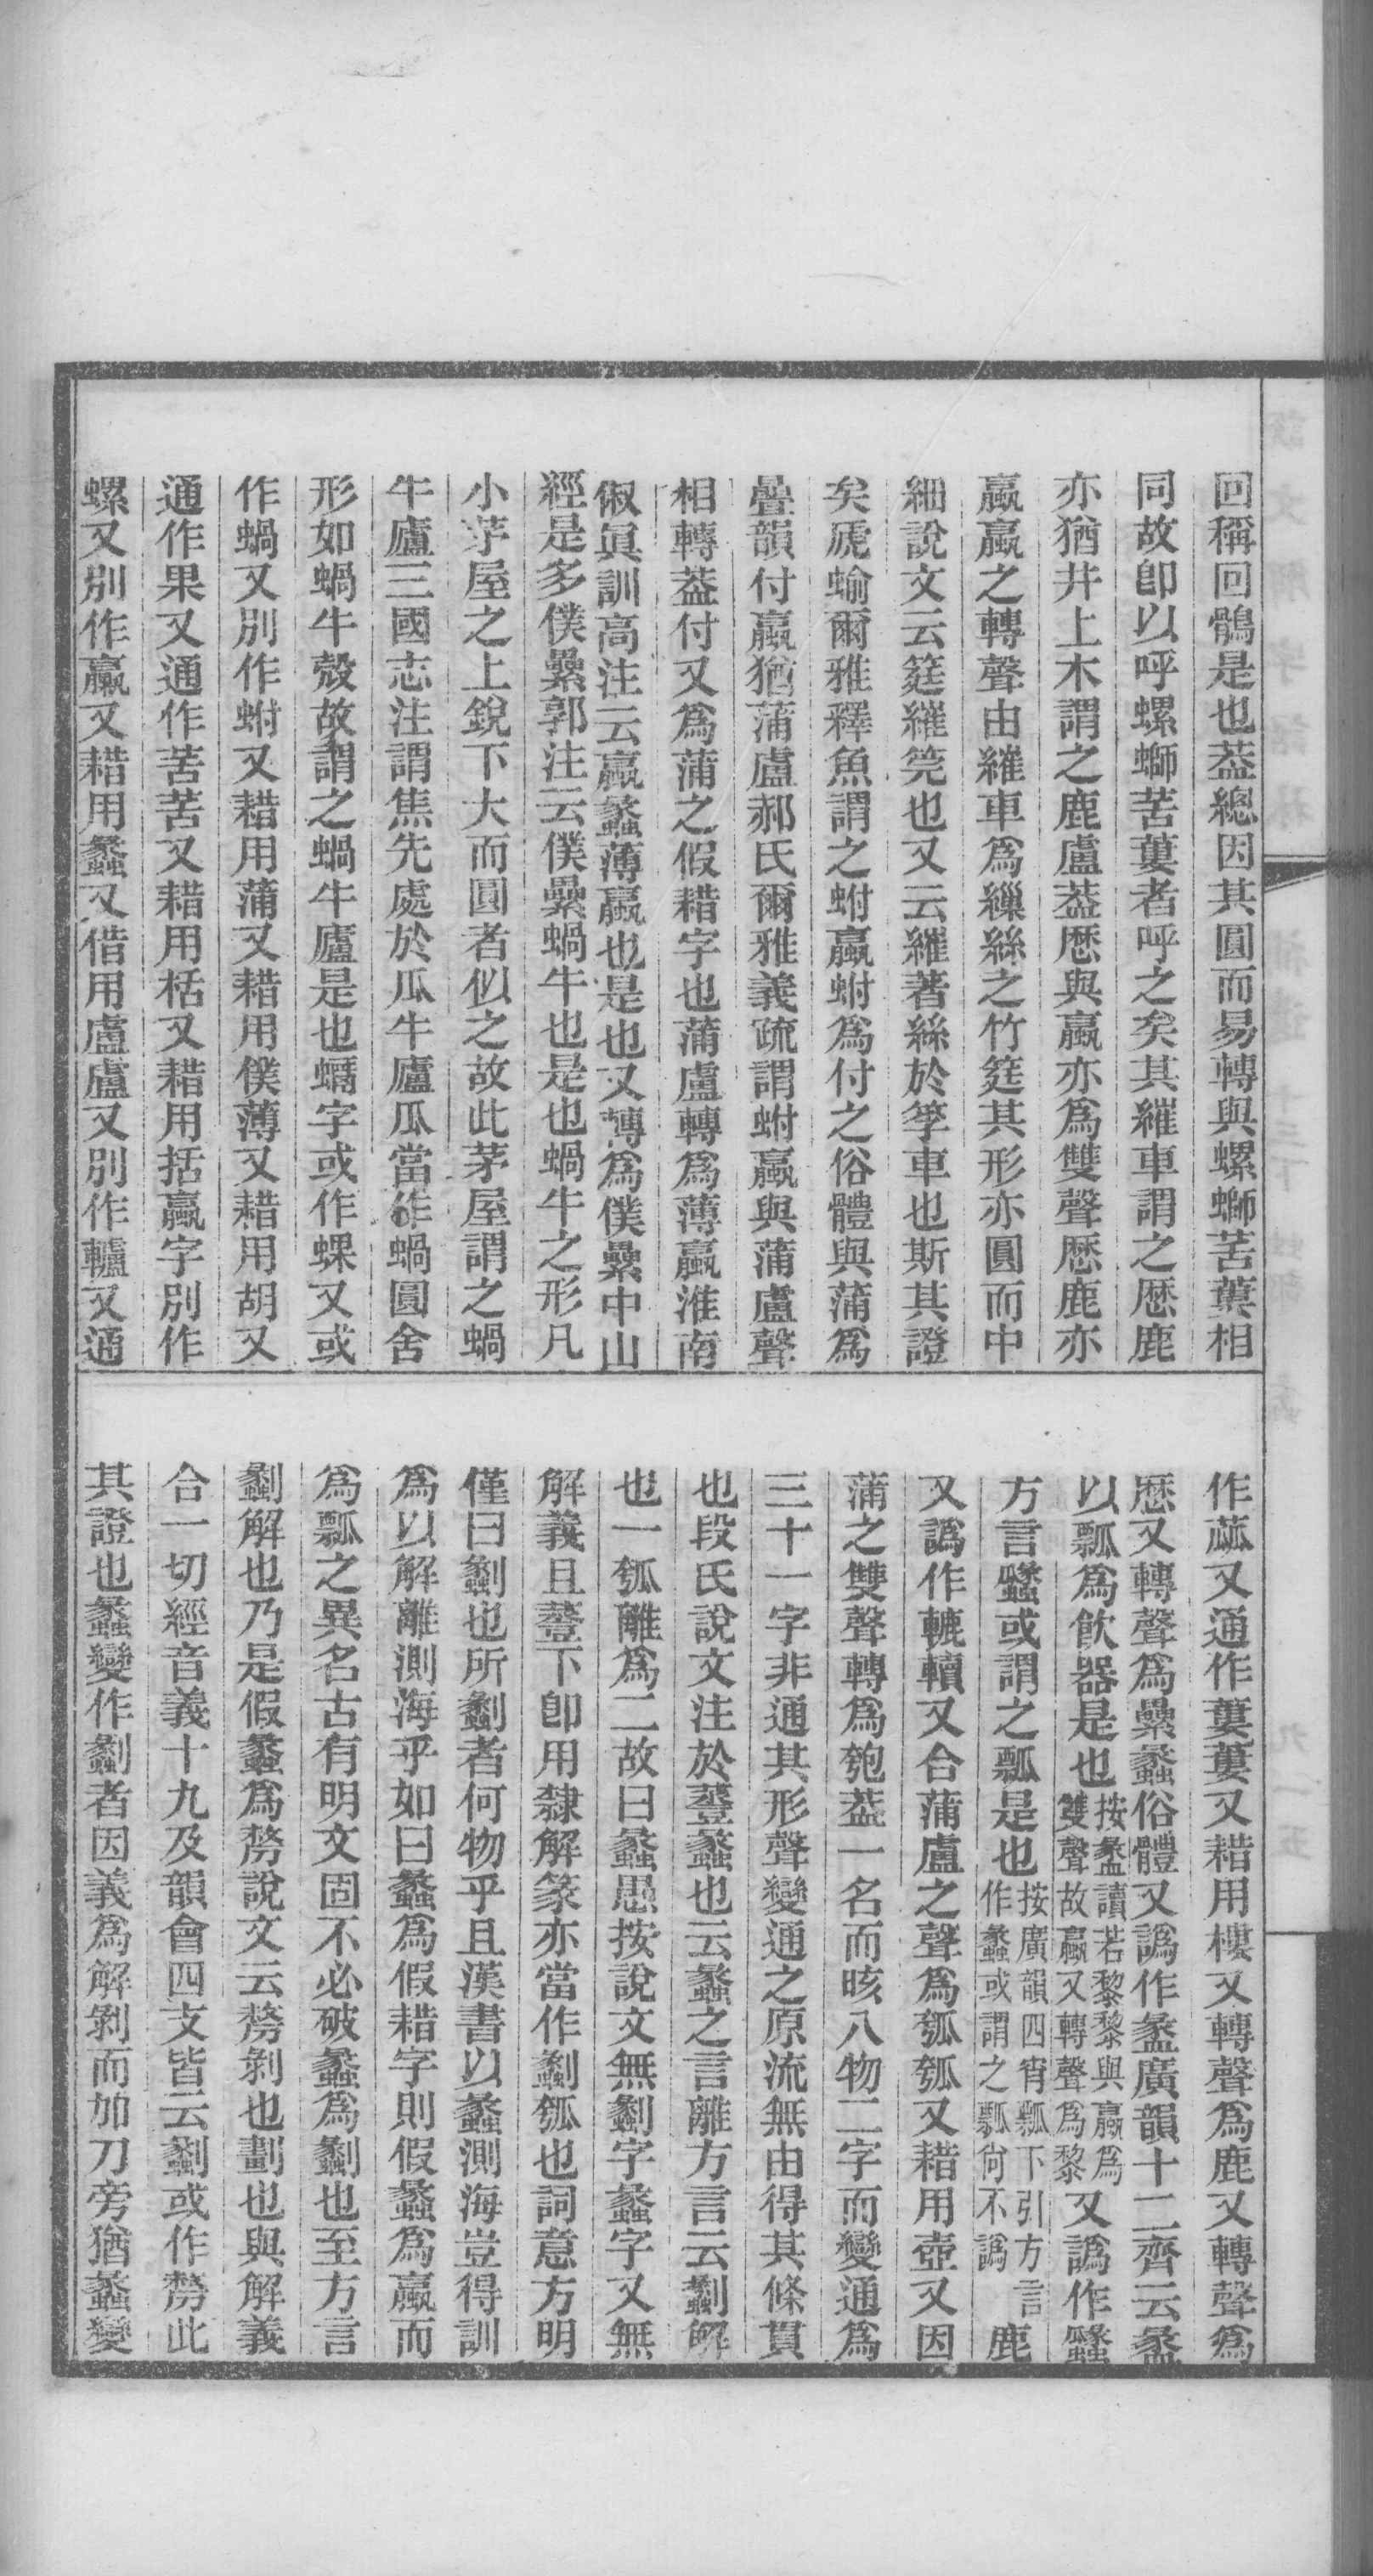 回稱回鶻是也葢總因其圓而易轉與螺螄苦蔞相
同故卽以呼螺螄苦蔞者呼之矣其䌪車謂之厯鹿
亦猶井上木謂之鹿盧葢厯與蠃亦爲雙聲厯鹿亦
蠃蠃之轉聲由䌪車爲繅絲之竹筳其形亦圓而中
細說文云筳䌪筦也又云䌪著絲於筟車也斯其證
矣虒蝓爾雅釋魚謂之蚹蠃蚹爲付之俗體與蒲爲
曡韻付蠃猶蒲盧郝氏爾雅義疏謂蚹蠃與蒲盧聲
相轉葢付又爲蒲之假耤字也蒲盧轉爲薄蠃淮南
俶眞訓高注云蠃蠡薄蠃也是也又轉爲僕纍中山
經是多僕纍郭注云僕纍蝸牛也是也蝸牛之形凡
小茅屋之上銳下大而圓者似之故此茅屋謂之蝸
牛廬三國志注謂焦先處於瓜牛廬瓜當作蝸圓舍
形如蝸牛殼故謂之蝸牛廬是也蠣字或作蜾又或
作蝸又別作蚹又耤用蒲又耤用僕薄又耤用胡又
通作果又通作苦苦又耤用栝又耤用括蠃字別作
螺又別作臝又耤用蠡又借用盧盧又別作轤又通
作蓏又通作蔞蔞又耤用樓又轉聲爲鹿又轉聲爲
厯又轉聲爲纍蠡俗體又譌作盠廣韻十二齊云盠
以瓢爲飮器是也按盠讀若黎黎與蠃爲雙聲故蠃又轉聲爲黎又譌作𧓽
方言𧓽或謂之瓢是也按廣韻四宵瓢下引方言作蠡或謂之瓢尙不譌鹿
又譌作轆轒又合蒲盧之聲爲瓠瓠又耤用壺又因
蒲之雙聲轉爲匏葢一名而晐八物二字而變通爲
三十一字非通其形聲變通之原流無由得其條貫
也段氏說文注於蠥蠡也云蠡之言離方言云劙解
也一瓠離爲二故曰蠡愚按說文無劙字蠡字又無
解義且䕫下卽用隸解篆亦當作劙瓠也詞意方明
僅曰劙也所劙者何物乎且漢書以蠡測海豈得訓
爲以解離測海乎如曰蠡爲假耤字則假蠡爲蠃而
爲瓢之異名古有明文固不必破蠡爲劙也至方言
劙解也乃是假蠡爲剺說文云剺剝也劃也與解義
合一切經音義十九及韻會四支皆云劙或作剺此
其證也蠡變作劙者因義爲解剝而加刀旁猶蠡變